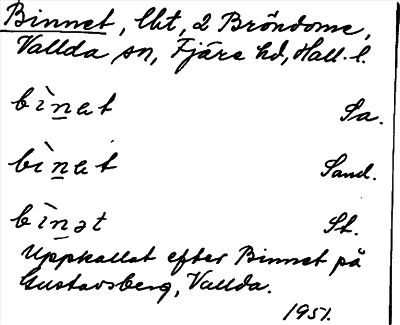 Binnet, lht, 2 Bröndome,
Vallda sn, Fjäre hd, Hall. l.
bìnat Sa.
bìnat Sand.
bìnət St.
Uppkallat efter Binnet på
Gustavsberg, Vallda.
1951.